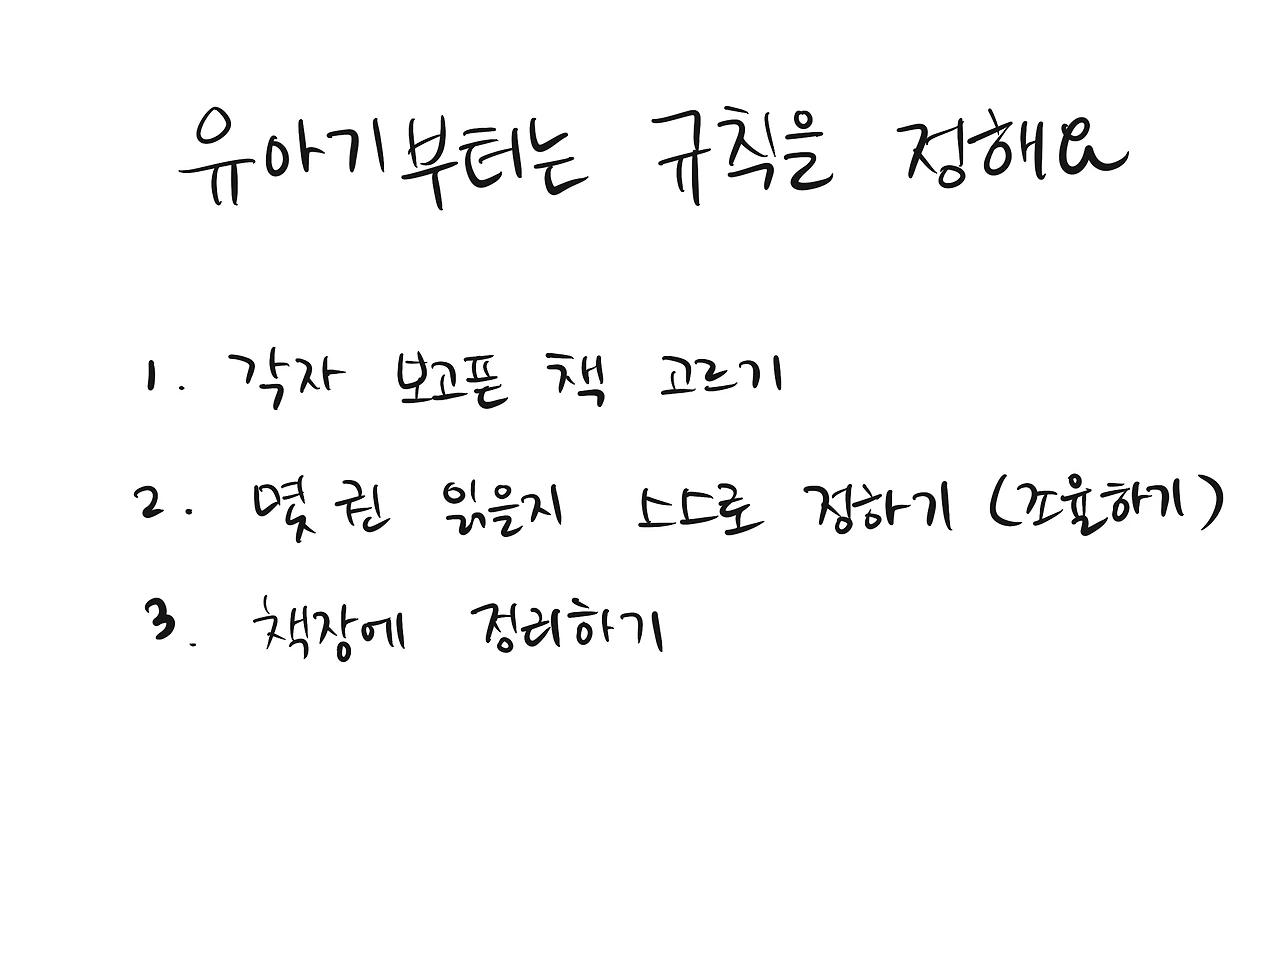 유아기부터는 규칙을 정해요
1. 각자 보고픈 책 고르기
2. 몇 권 읽을지 스스로 정하기 (조율하기)
3. 책장에 정리하기